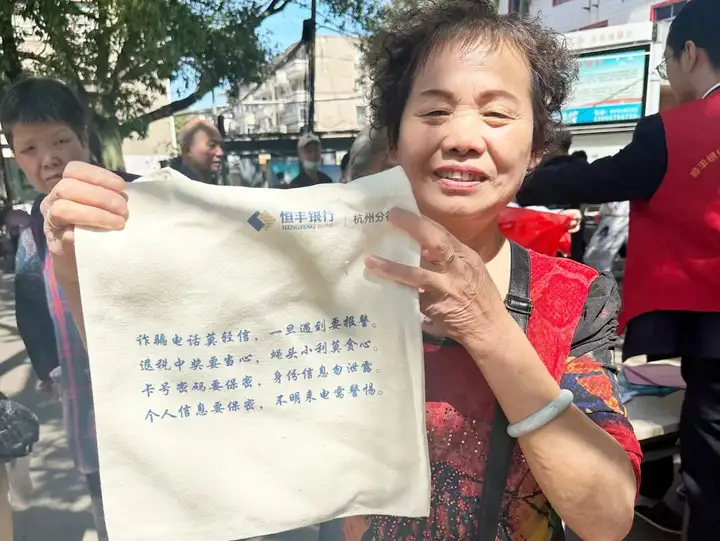 恒丰银行 | 杭州分
HENGFENG BANK
诈骗电话莫轻信，一旦遇到要报警。
退税中奖要当心，蝇头小利莫贪心。
卡号密码要保密，身份信息勿泄露。
个人信息要保密，不明来电需警惕。
恒丰银行